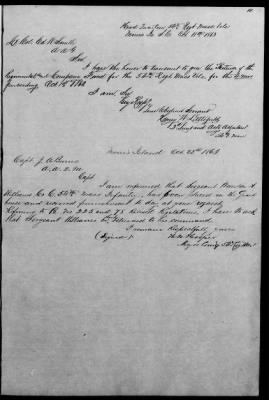 Head Quarters 54th Regt Mass Vols
Morris Id S.C. Oct 11th 1863
Lt Col Ed W Smith
A.A.G
Sir
I have the honor to transmit to you the Return of the
Regimental and Company Fund for the 54th Regt Mass Vols for the
preceding Oct 1st 1863
I am Sir
Very Resply
Your Obedient Servant
Henry W. Littlefield
2d Lieut and Act Adjutant
54th Mass
Morris Island Oct 25th 1863
Capt
A.A.Q.M.
Capt
I am informed that Sergeant
Williams Co C. 54th Mass Infantry, has been in the Guard
house and received punishment to day at your request
Referring to 225 and 78 Revised Regulations, I have to ask
that Sergeant Williams be returned to his command.
I remain Respectfully yours
(Signed) Hooper
Major Comdg 54th